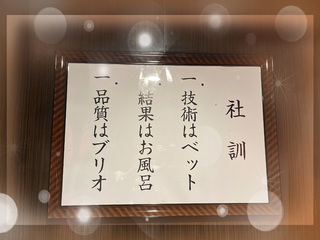 社訓
一．技術はベット
一．結果はお風呂
一．品質はブリオ